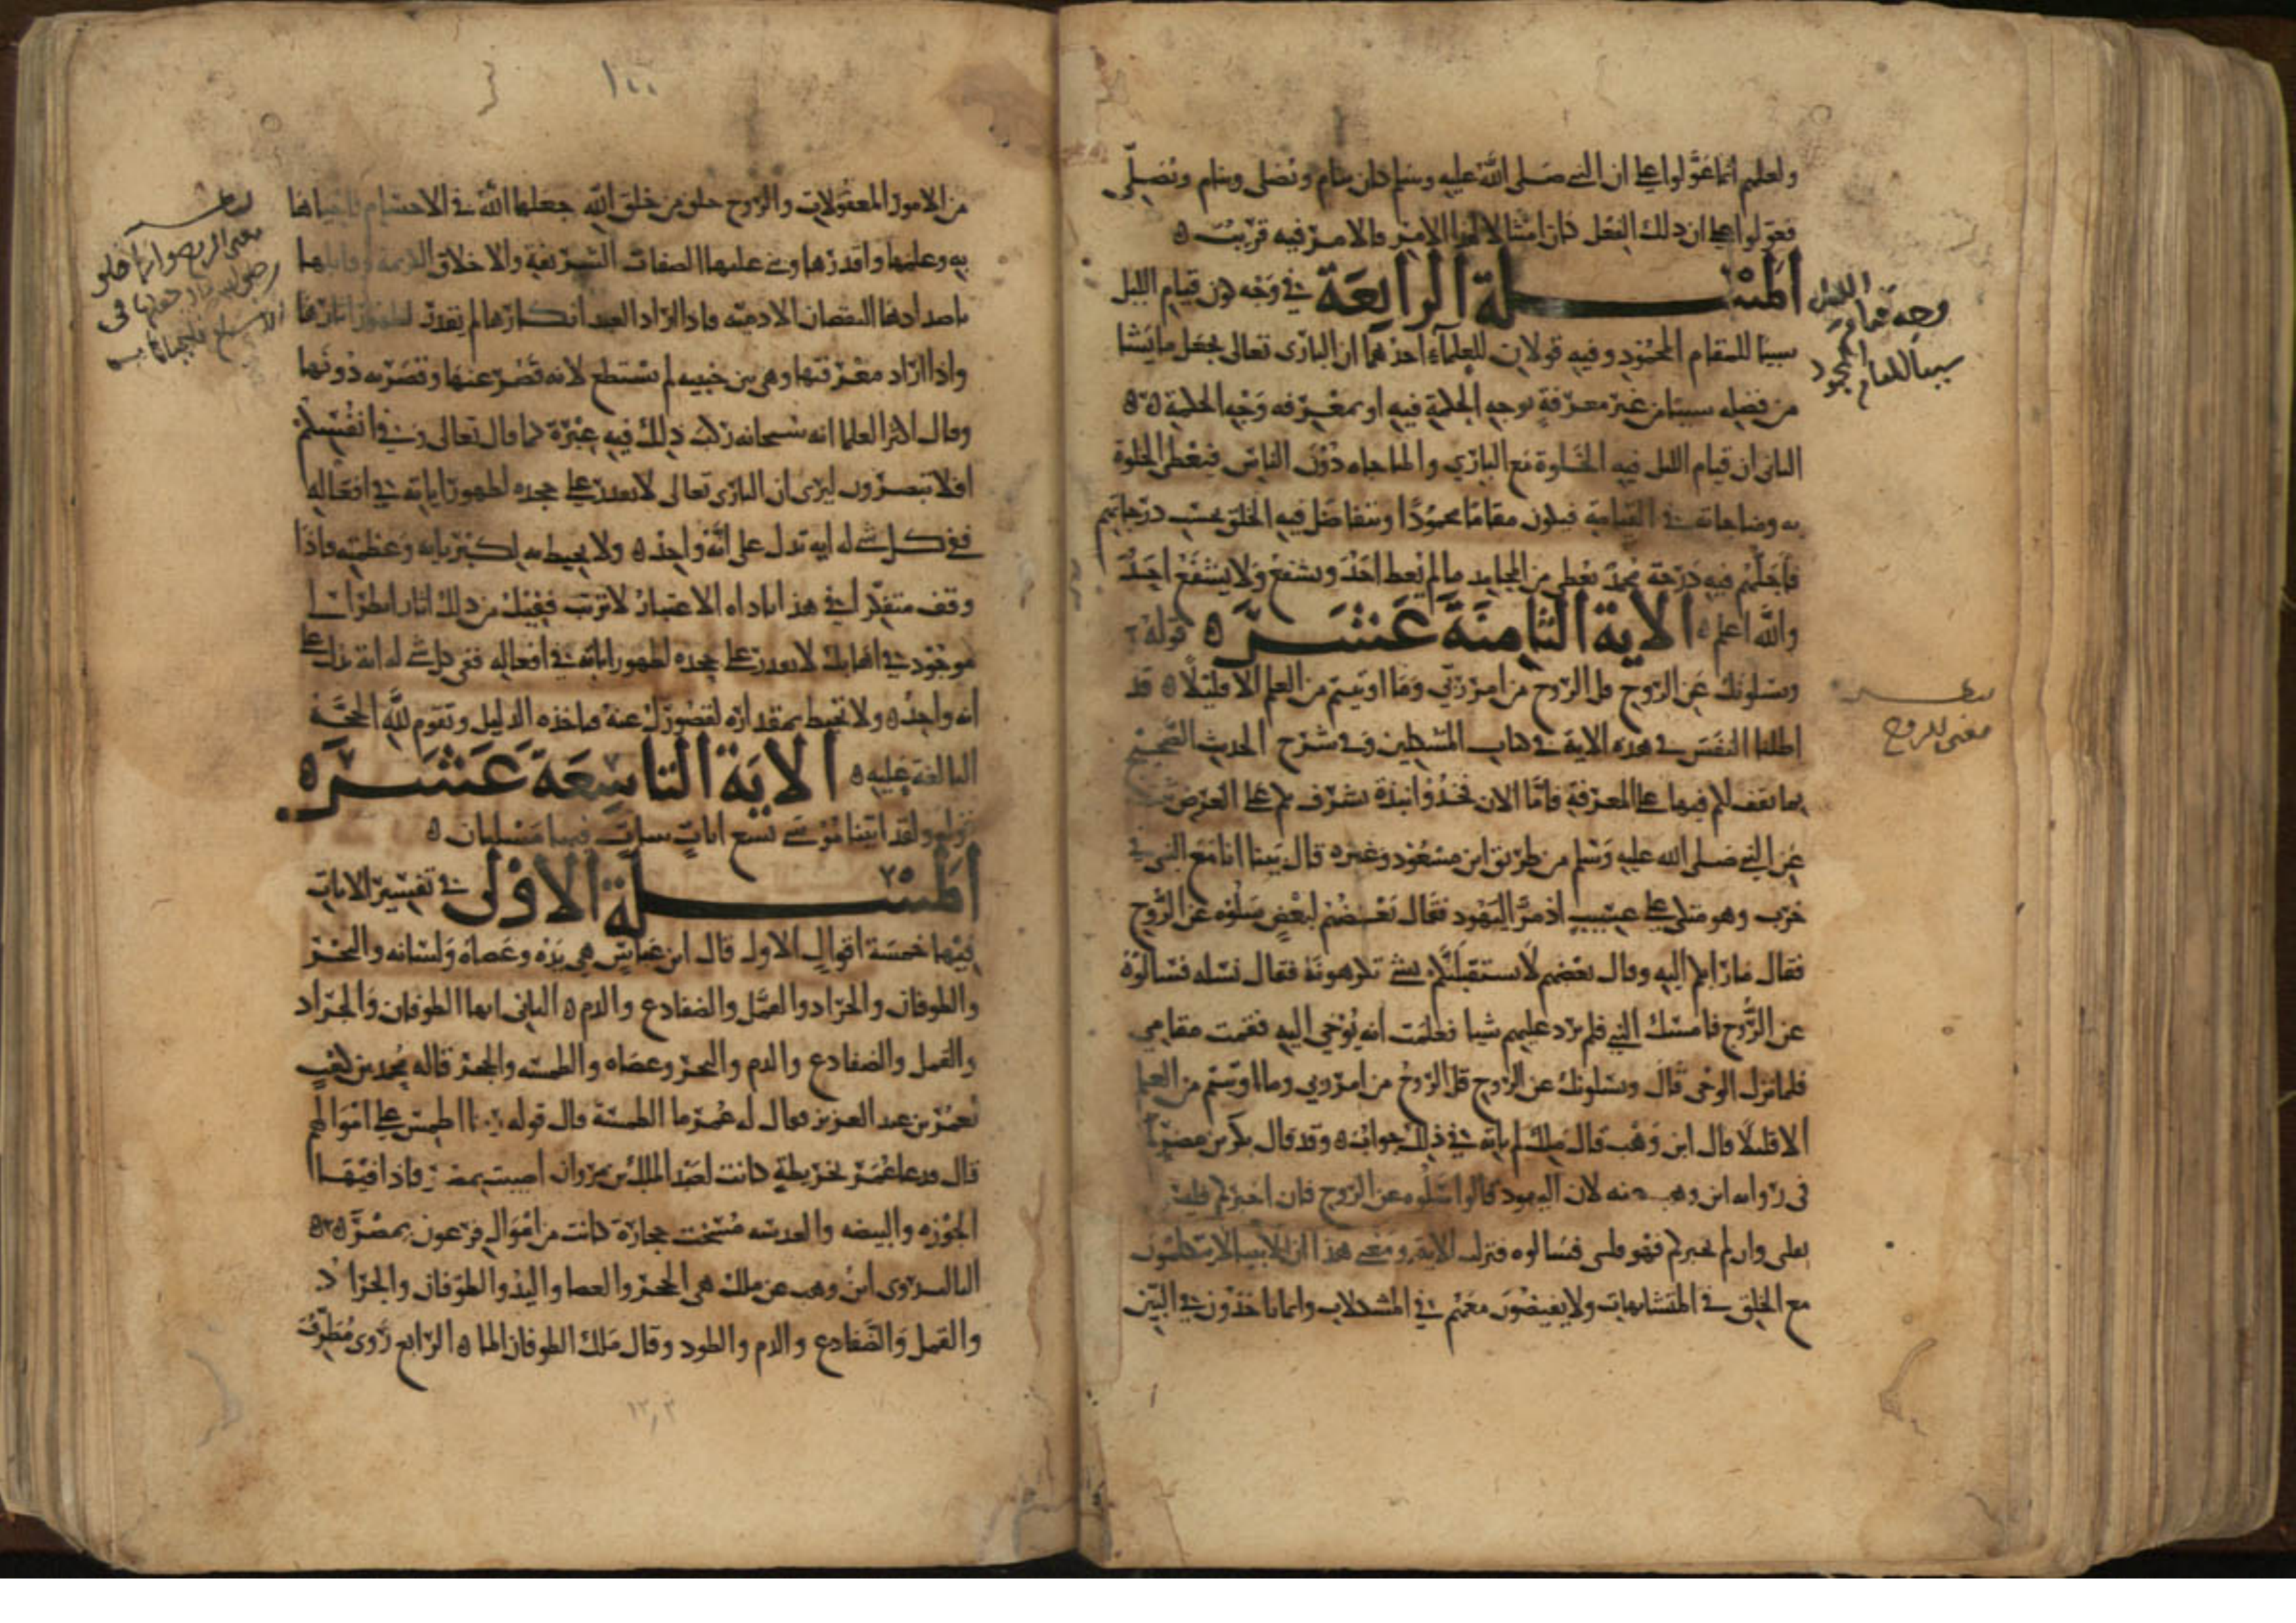 ولعلهم انما عولوا على ان النبي صلى الله عليه وسلم كان ينام ويصلي وينام ويصلي
فعولوا على ان ذلك الفعل كان امتثالا لهذا الامر فالامر فيه قريب ه
المسئلة الرابعة في وجه كون قيام الليل
سببا للمقام المحمود وفيه قولان للعلماء احدهما ان الباري تعالى يجعل ما يشا
من فضله سببا من غير معرفة بوجه الحكمة فيه او بمعرفه وجه الحكمة ه
الثاني ان قيام الليل فيه الخلوة مع الباري والمناجاه دون الناس فيعطى الخلوة
به ومناجاته في القيامة فيكون مقاما محمودا ويتفاضل فيه الخلق بحسب درجاتهم
فاجلهم فيه درجة محمد يعطى من المحامد ما لم يعط احد ويشفع ولا يشفع احد
والله اعلم ه الاية الثامنة عشر ه قوله
ويسلونك عن الروح قل الروح من امر ربي وما اوتيتم من العلم الا قليلا ه قد
اطلنا النفس في هذه الاية في كتاب المشكلين وفي شرح الحديث الصحيح
بما يقف بكم فيها على المعرفة فاما الان فخذوا نبذة تشرف بكم على الغرض
عن النبي صلى الله عليه وسلم من طريق ابن مسعود وغيره قال بينا انا مع النبي في
حرث وهو متكي على عسيب اذ مر اليهود فقال بعضهم لبعض سلوه عن الروح
فقال ما رابكم اليه وقال بعضهم لا يستقبلنكم بشي تكرهونه فقال نسله فسالوه
عن الروح فامسك النبي فلم يرد عليهم شيا فعلمت انه يوحى اليه فقمت مقامي
فلما نزل الوحي قال ويسلونك عن الروح قل الروح من امر ربي وما اوتيتم من العلم
الا قليلا قال ابن وهب قال ملك لم ياته في ذلك جواب ه وقد قال بكر بن مضر
في رواية ابن وهب عنه لان اليهود قالوا سلوه عن الروح فان اخبركم فليس
بنبي وان لم يخبركم فهو نبي فسالوه فنزلت الاية ومعنى هذا ان الانبيا لا يتكلمون
مع الخلق في المتشابهات ولا يفيضون معهم في المشكلات وانما ياخذون في البين
وجه قيام الليل
سببا للمقام المحمود
مطلب
معنى للروح
١٠٠
من الامور المعقولات والروح خلق من خلق الله جعلها الله في الاجسام فاحياها
به وعلمها واقدرها وبنى عليها الصفات الشريفة والاخلاق الكريمة وقابلها
باضدادها لنقصان الادمية فاذا اراد العبد انكارها لم يقدر لظهور اثارها
واذا اراد معرفتها وهي بين جنبيه لم يستطع لانه قصر عنها وقصر به دونها
وقال اكثر العلما انه سبحانه ركب ذلك فيه عبرة كما قال تعالى وفي انفسكم
افلا تبصرون ليرى ان الباري تعالى لا يقدر على جحده لظهور اياته في افعاله
ففي كل شي له اية تدل على انه واحد ه ولا يحيط به لكبريايه وعظمته فاذا
وقف متفكرا في هذا ناداه الاعتبار لا ترتب ففيك من ذلك اثار انظر الى
موجود في اهابك لا تقدر على جحده لظهور اثاره في افعاله ففي كل شي له اية تدل على
انه واحد ه ولا تحيط بمقداره لقصورك عنه فياخذه الدليل وتقوم لله الحجة
البالغة عليه ه الاية التاسعة عشر ه
قوله ولقد اتينا موسى تسع ايات بينات فيها مسلتان ه
المسئلة الاولى في تفسير الايات
فيها خمسة اقوال الاول قال ابن عباس هي يده وعصاه ولسانه والبحر
والطوفان والجراد والقمل والضفادع والدم ه الثاني انها الطوفان والجراد
والقمل والضفادع والدم والبحر وعصاه والطمسه والحجر قاله محمد بن كعب
لعمر بن عبد العزيز فقال له عمر ما الطمسة قال قوله ربنا اطمس على اموالهم
قال فدعا عمر بخريطة كانت لعبد الملك بن مروان اصيبت بمصر فاذا فيها
الجوزه والبيضه والعدسه مسخت حجارة كانت من اموال فرعون بمصر ه
الثالث روى ابن وهب عن ملك هي الحجر والعصا واليد والطوفان والجراد
والقمل والضفادع والدم والطود وقال ملك الطوفان الما ه الرابع روى مطرف
مطلب
معنى الروح هو انها خلق